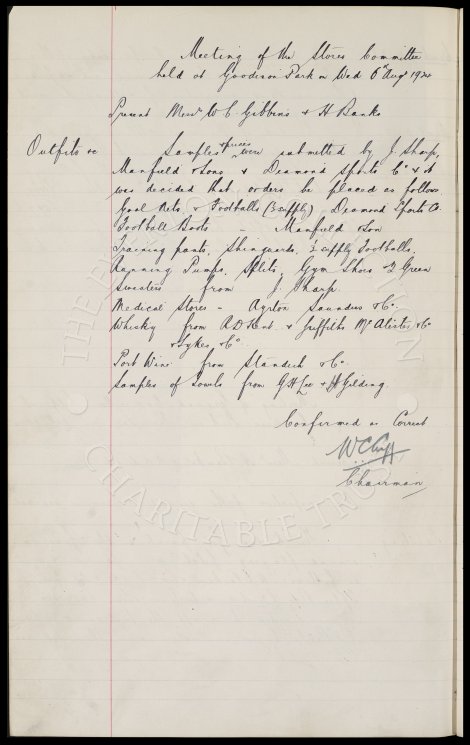 Meeting of the Stores Committee
held at Goodison Park on Wed 6th Augt 1924
Present Messrs W C Gibbins & H Banks
Outfits &c
Samples & prices were submitted by J. Sharp,
Manfield & Sons & Deamond Sports Co & it
was decided that orders be placed as follows
Goal Nets, & Footballs (½ supply), Deamond Sports Co.
Football Boots - Manfield & Son
Training pants, Shinguards, ½ supply Footballs,
Running Pumps, Splits, Gym Shoes & Green
Sweaters from J. Sharp.
Medical Stores - Ayrton Saunders & Co.
Whisky from R D Kent & Griffiths McAlister & Co
& Sykes & Co
Port Wine from Standish & Co.
Samples of Towels from G H Lee & H Gilding.
Confirmed as Correct
W C Cuff
Chairman
CHARITABLE TRUST